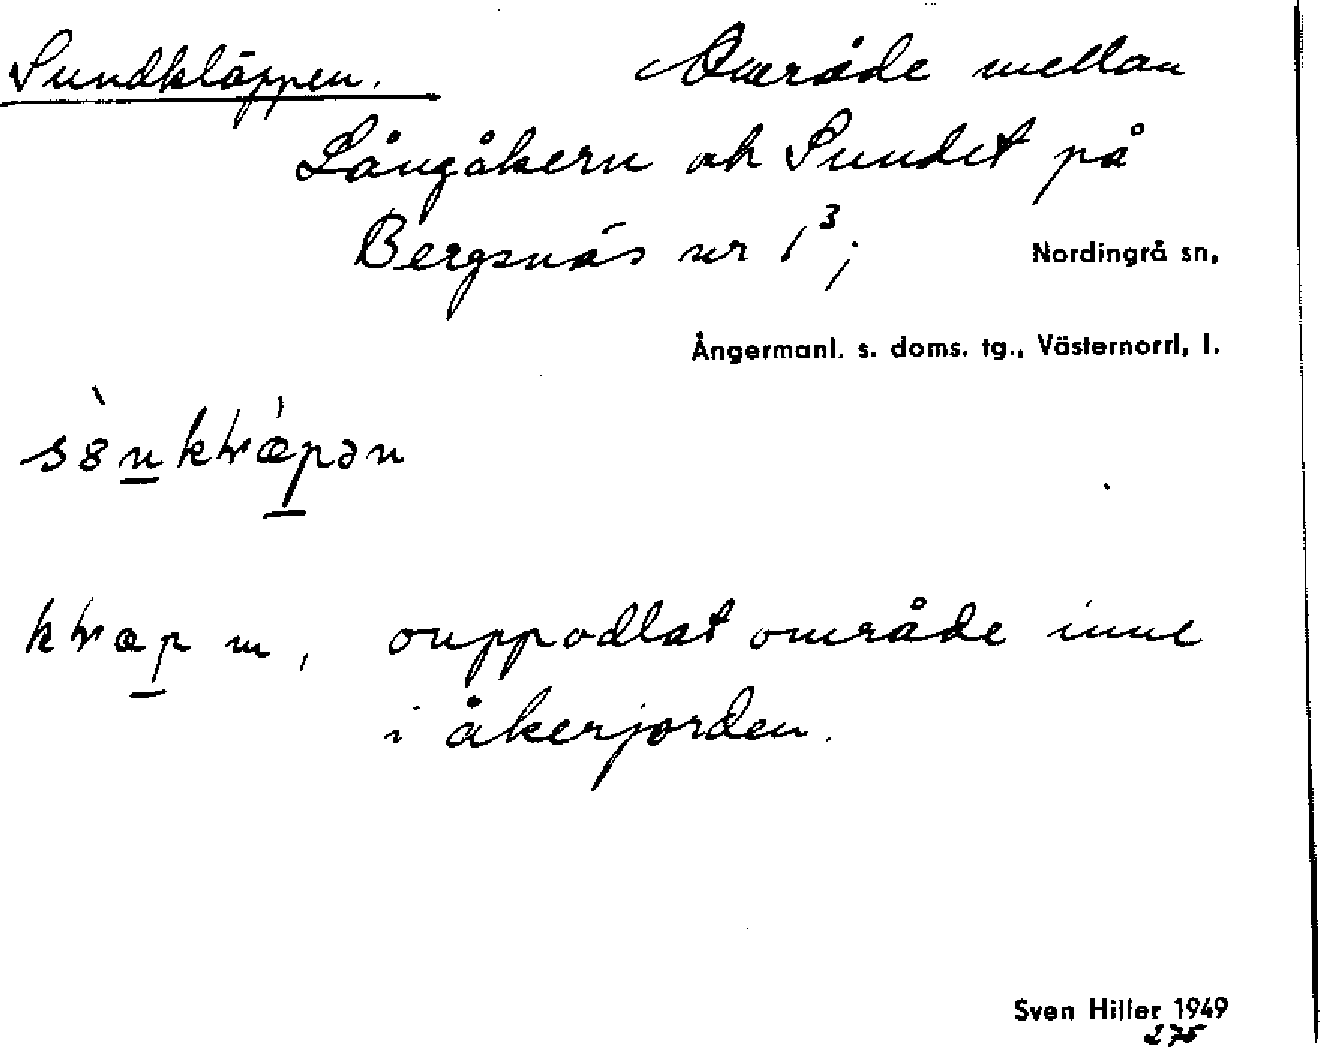 Sundkläppen. Område mellan
Långåkern och Sundet på
Bergsnäs nr 1³; Nordingrå sn,
Ångermanl. s. doms. tg., Västernorrl, l.
m, ouppodlat område inne
i åkerjorden.
Sven Hiller 1949
275